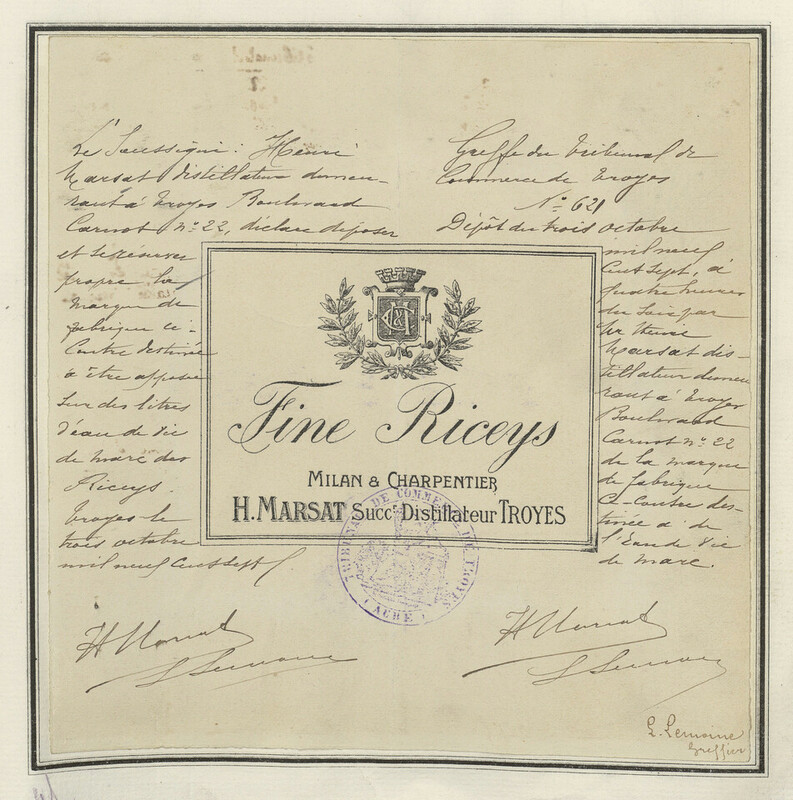 Le Soussigné : Henri
Marsat distillateur demeu-
rant à Troyes Boulevard
Carnot nº 22, déclare déposer
et se réserver
propre la
marque de
fabrique ci-
Contre destinée
à être apposée
sur des litres
d'eau de vie
de marc des
Riceys.
Troyes le
trois octobre
mil neuf cent sept
H Marsat
L Lemoine
Greffe du Tribunal de
Commerce de Troyes
Nº 621
Dépôt du trois octobre
mil neuf
cent sept, à
quatre heures
du soir par
Mr Henri
Marsat dis-
tillateur demeu
rant à Troyes
Boulevard
Carnot nº 22
de la marque
de fabrique
Ci-Contre des-
tinée à de
l'Eau de Vie
de marc.
H Marsat
L Lemoine
L. Lemoine
Greffier
Fine Riceys
MILAN & CHARPENTIER
H. MARSAT Succr Distillateur TROYES
TRIBUNAL DE COMMERCE DE TROYES
(AUBE)